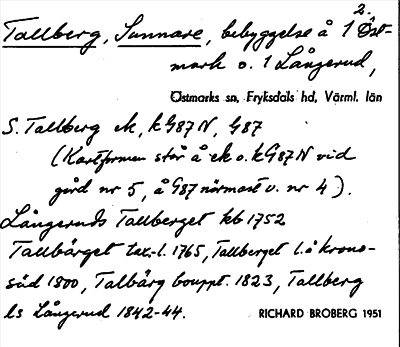 2.
Tallberg, Sunnare, bebyggelse å 1 Öst-
mark o. 1 Långerud,
Östmarks sn, Fryksdals hd, Värml. län
S. Tallberg ek, k G87 N, G87
(Kartformen står å ek o. k G87 N vid
gård nr 5, å G87 närmast v. nr 4).
Långeruds Tallberget kb 1752
Tallbärget tax.-l. 1765, Tallberget l. å krono-
säd 1800, Talbärg bouppt. 1823, Tallberg
ls Långerud 1842-44.
RICHARD BROBERG 1951